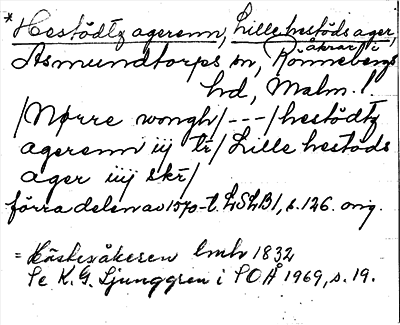 *Hestödtz agerenn, Lille hestöds ager,
åkrar i
Asmundtorps sn, Rönnebergs
hd, Malm. l.
/Nørre wongh/---/hestödtz
agerenn iij tr/Lille hestöds
ager iiij skr/
förra delen av 1570-t. LSLB1, s.126. orig.
= Hästesåkeren lmh 1832
Se K.G. Ljunggren i SOÅ 1969, s.19.